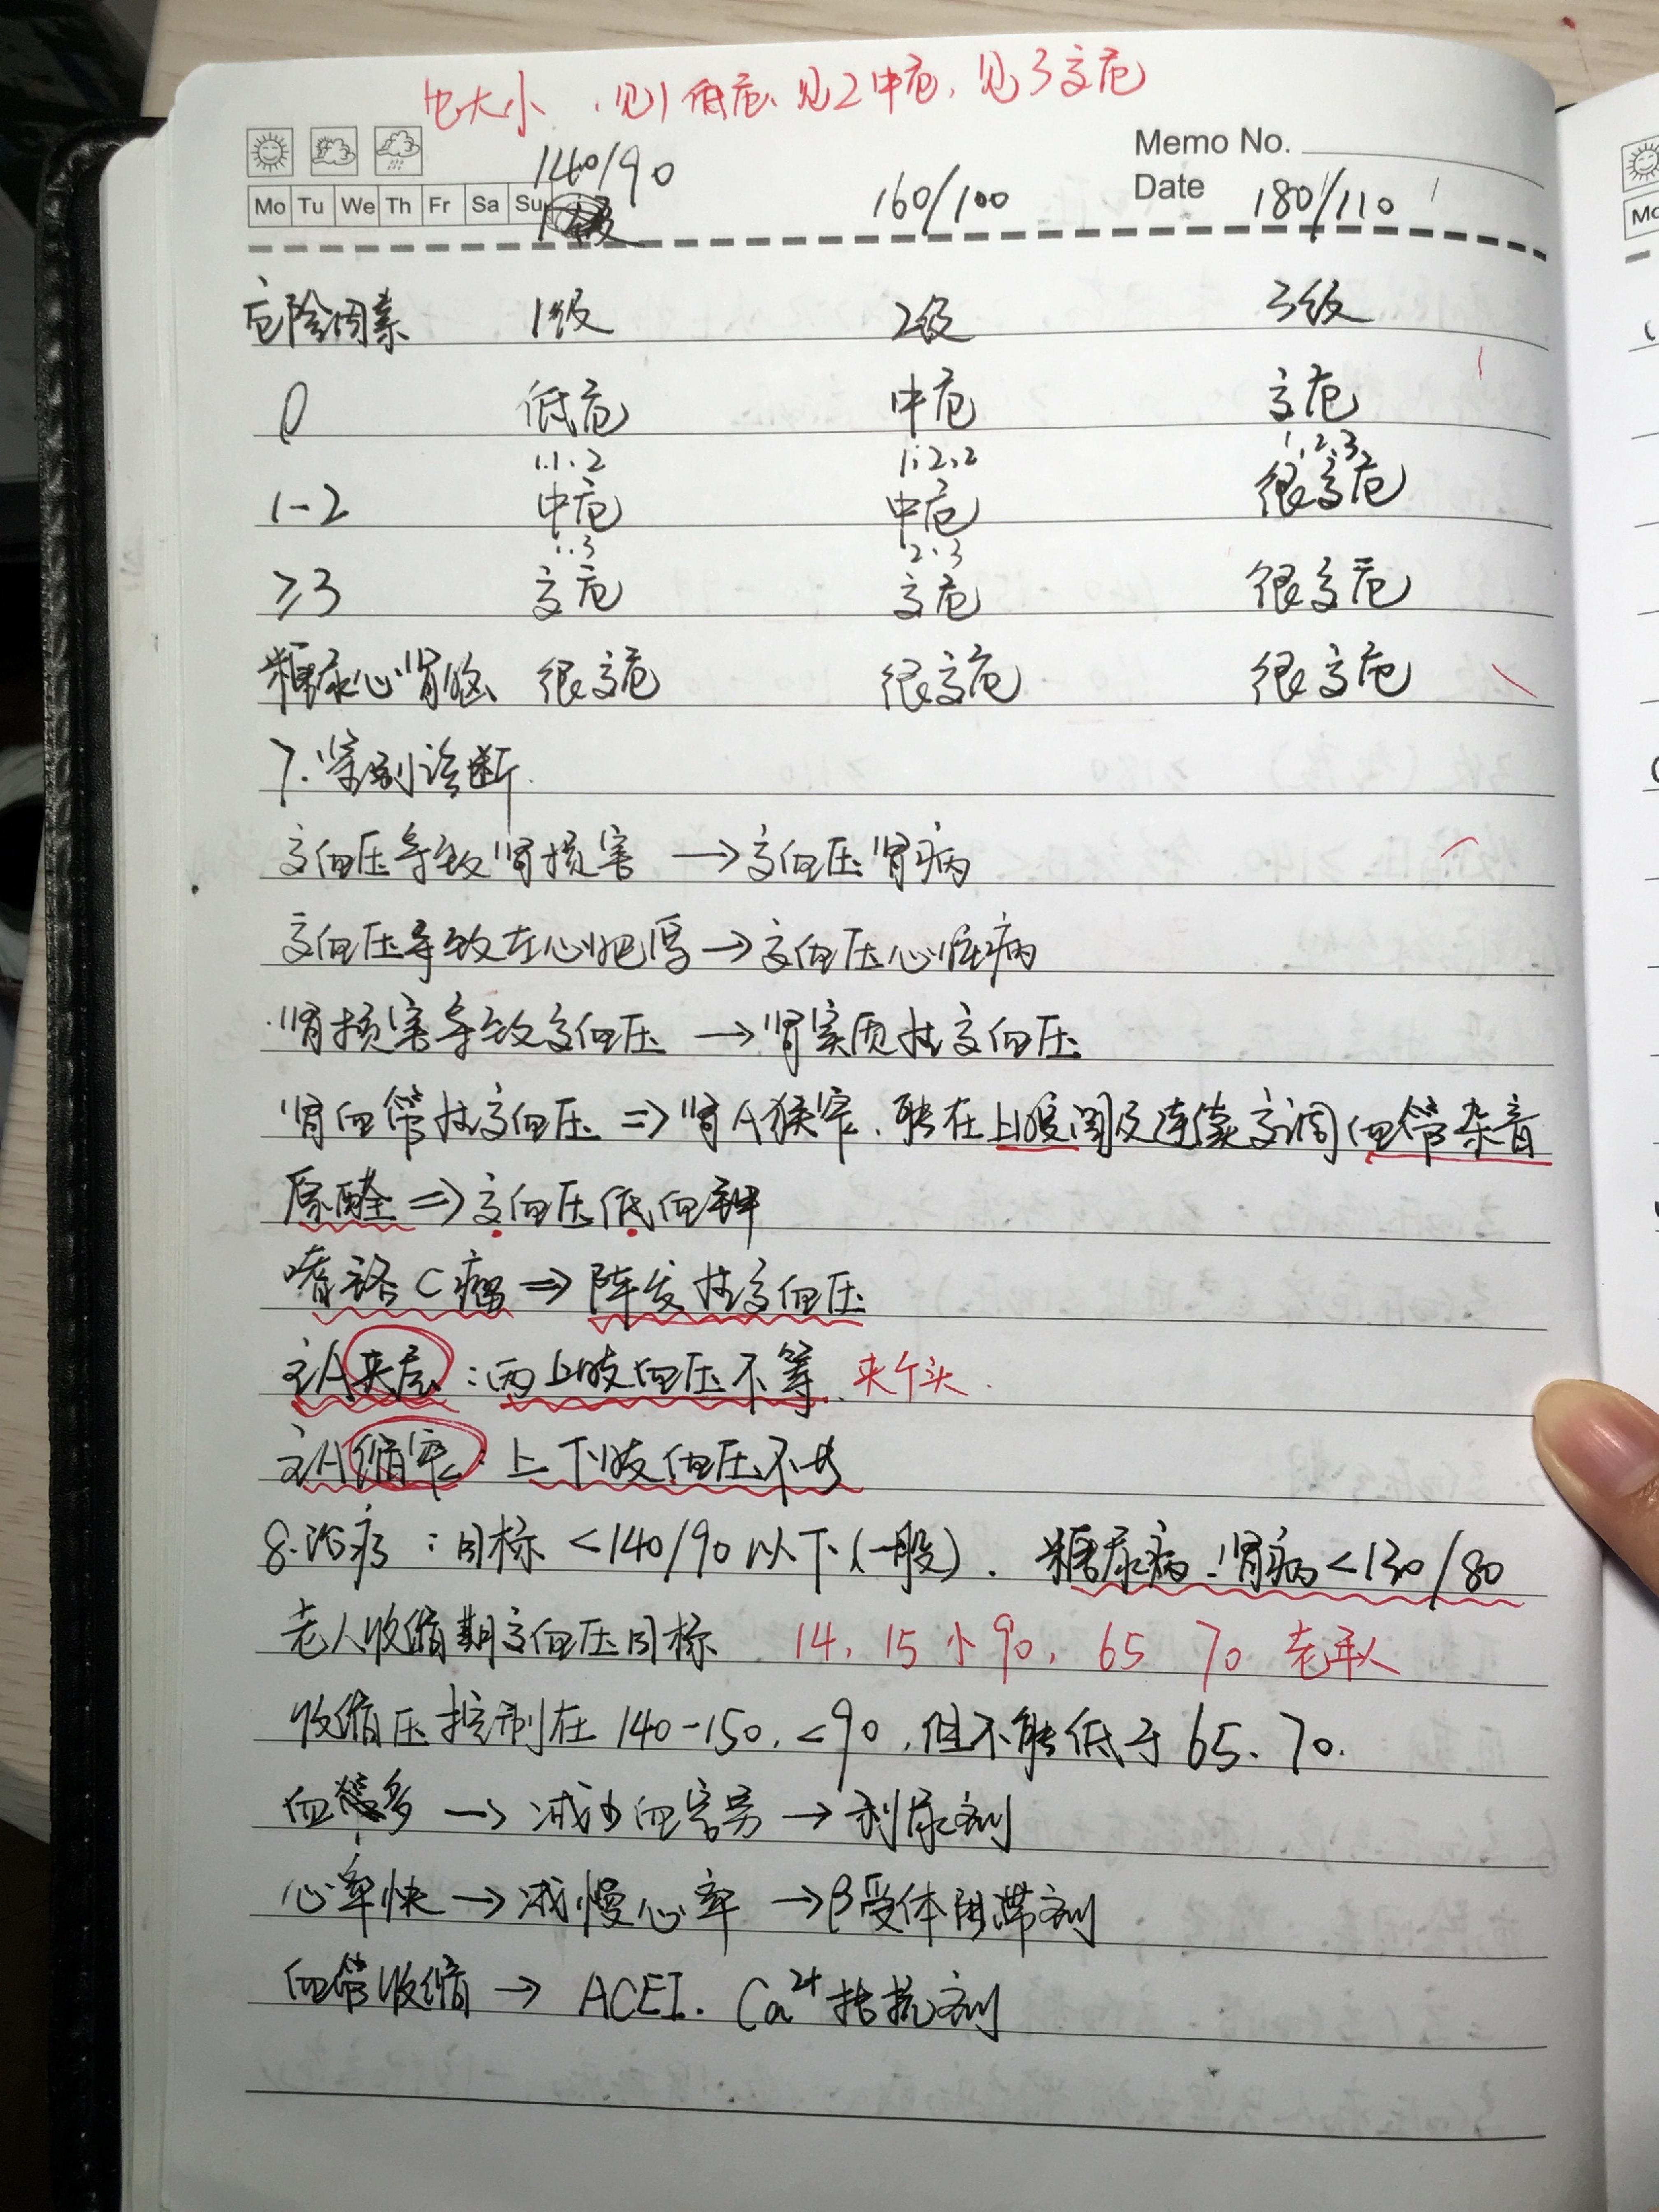 比大小，见1低危、见2中危，见3高危
Memo No.
140/90
160/100
Date 180/110
Mo Tu We Th Fr Sa Su
危险因素 1级 2级 3级
0 低危 中危 高危
1.1.2 1.2.2 1.2.3
1-2 中危 中危 很高危
1.3 2.3
≥3 高危 高危 很高危
糖尿心肾脑 很高危 很高危 很高危
7.鉴别诊断.
高血压导致肾损害 →高血压肾病
高血压导致左心肥厚→高血压心脏病
肾损害导致高血压 →肾实质性高血压
肾血管性高血压 ⇒肾A狭窄、能在上腹闻及连续高调血管杂音
原醛⇒高血压低血钾
嗜铬C瘤⇒阵发性高血压
主A夹层：两上肢血压不等、夹个头.
主A缩窄：上下肢血压不等
8.治疗：目标<140/90以下(一般). 糖尿病、肾病<130/80
老人收缩期高血压目标 14, 15 小90, 65 70 老年人
收缩压控制在140-150, <90,但不能低于65、70.
血容多→减少血容易→利尿剂
心率快→减慢心率→β受体阻滞剂
血管收缩→ ACEI. Ca²⁺拮抗剂